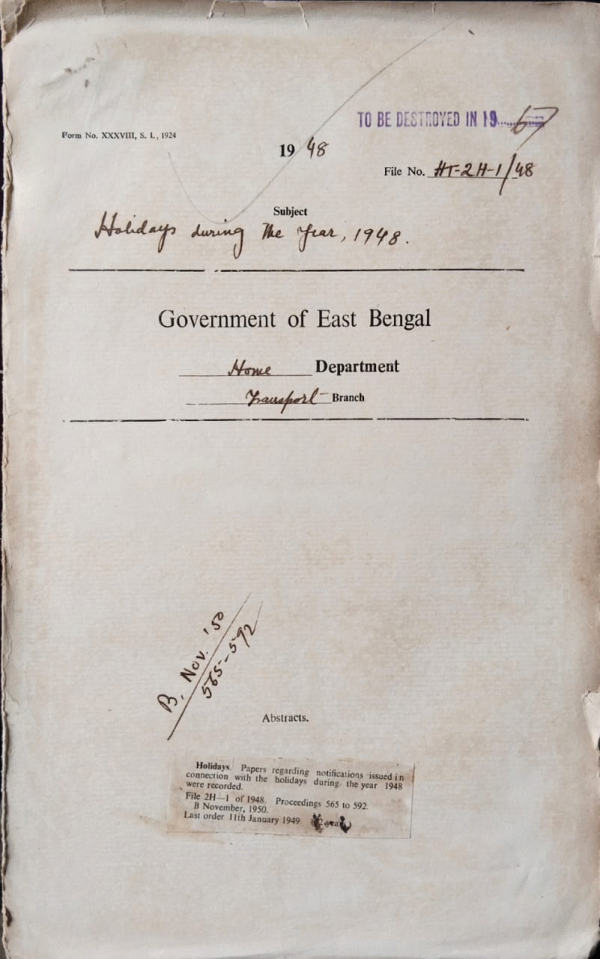 TO BE DESTROYED IN 19......67
Form No. XXXVIII, S. I., 1924
1948
File No. HT-2H-1/48
Subject
Holidays during the Year, 1948.
Government of East Bengal
Home Department
Transport Branch
B, Nov. '50
565-592
Abstracts.
Holidays. Papers regarding notifications issued in
connection with the holidays during the year 1948
were recorded.
File 2H—1 of 1948. Proceedings 565 to 592.
B November, 1950.
Last order 11th January 1949